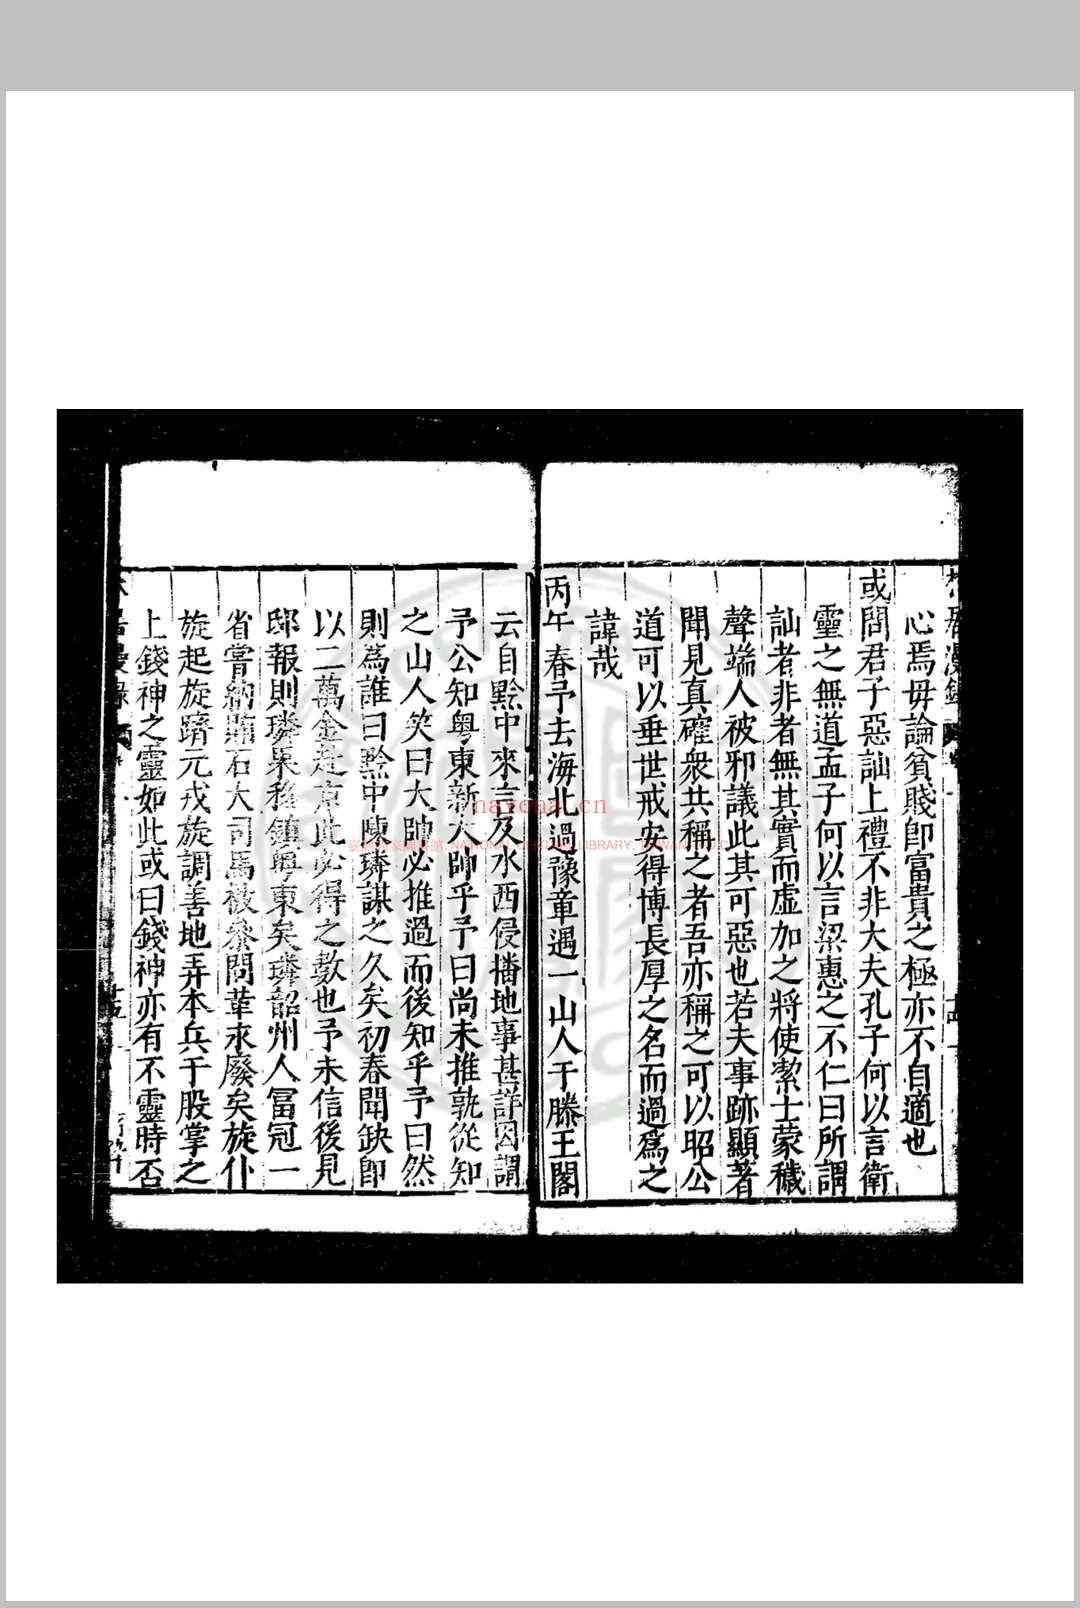 心焉毋論貧賤即富貴之極亦不自適也
或問君子惡訕上禮不非大夫孔子何以言衛
靈之無道孟子何以言梁惠之不仁曰所謂
訕者非者無其實而虛加之將使潔士蒙穢
聲端人被邪議此其可惡也若夫事跡顯著
聞見真確衆共稱之者吾亦稱之可以昭公
道可以垂世戒安得博長厚之名而過爲之
諱哉
丙午春予去海北過豫章遇一山人于滕王閣
云自黔中來言及水西侵播地事甚詳因謂
予公知粤東新大帥乎予曰尚未推孰從知
之山人笑曰大帥必推過而後知乎予曰然
則爲誰曰黔中陳璘謀之久矣初春聞缺即
以二萬金走京此必得之數也予未信後見
邸報則璘果移鎮粤東矣璘韶州人冨冠一
省嘗納賄石大司馬被參問革永廢矣旋仆
旋起旋躋元戎旋調善地弄本兵于股掌之
上錢神之靈如此或曰錢神亦有不靈時否
nayona.cn
NATIONAL CENTRAL LIBRARY, TAIWAN